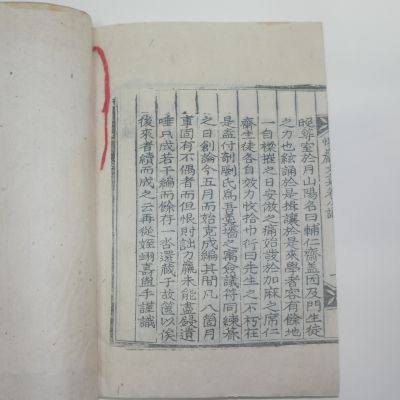 晩築室於月山陽名曰輔仁齋蓋因及門生徒
之力也絃誦於是揖讓於是來學者容有餘地
一自樑摧之日安倣之痛始發於加麻之席仁
齋生徒各自效力恰恰巾行曰先生之不朽在
是盍付剞劂氏爲吾黌墻之寓慕議符同練朞
之日創論今五月而始克成編其間凡八箇月
事固有不偶者而但恨財詘力羸未能盡發遺
唾只成若干編而餘存一沓還藏于故篋以俟
後來者續而成之云再從姪翊嘉盥手謹識